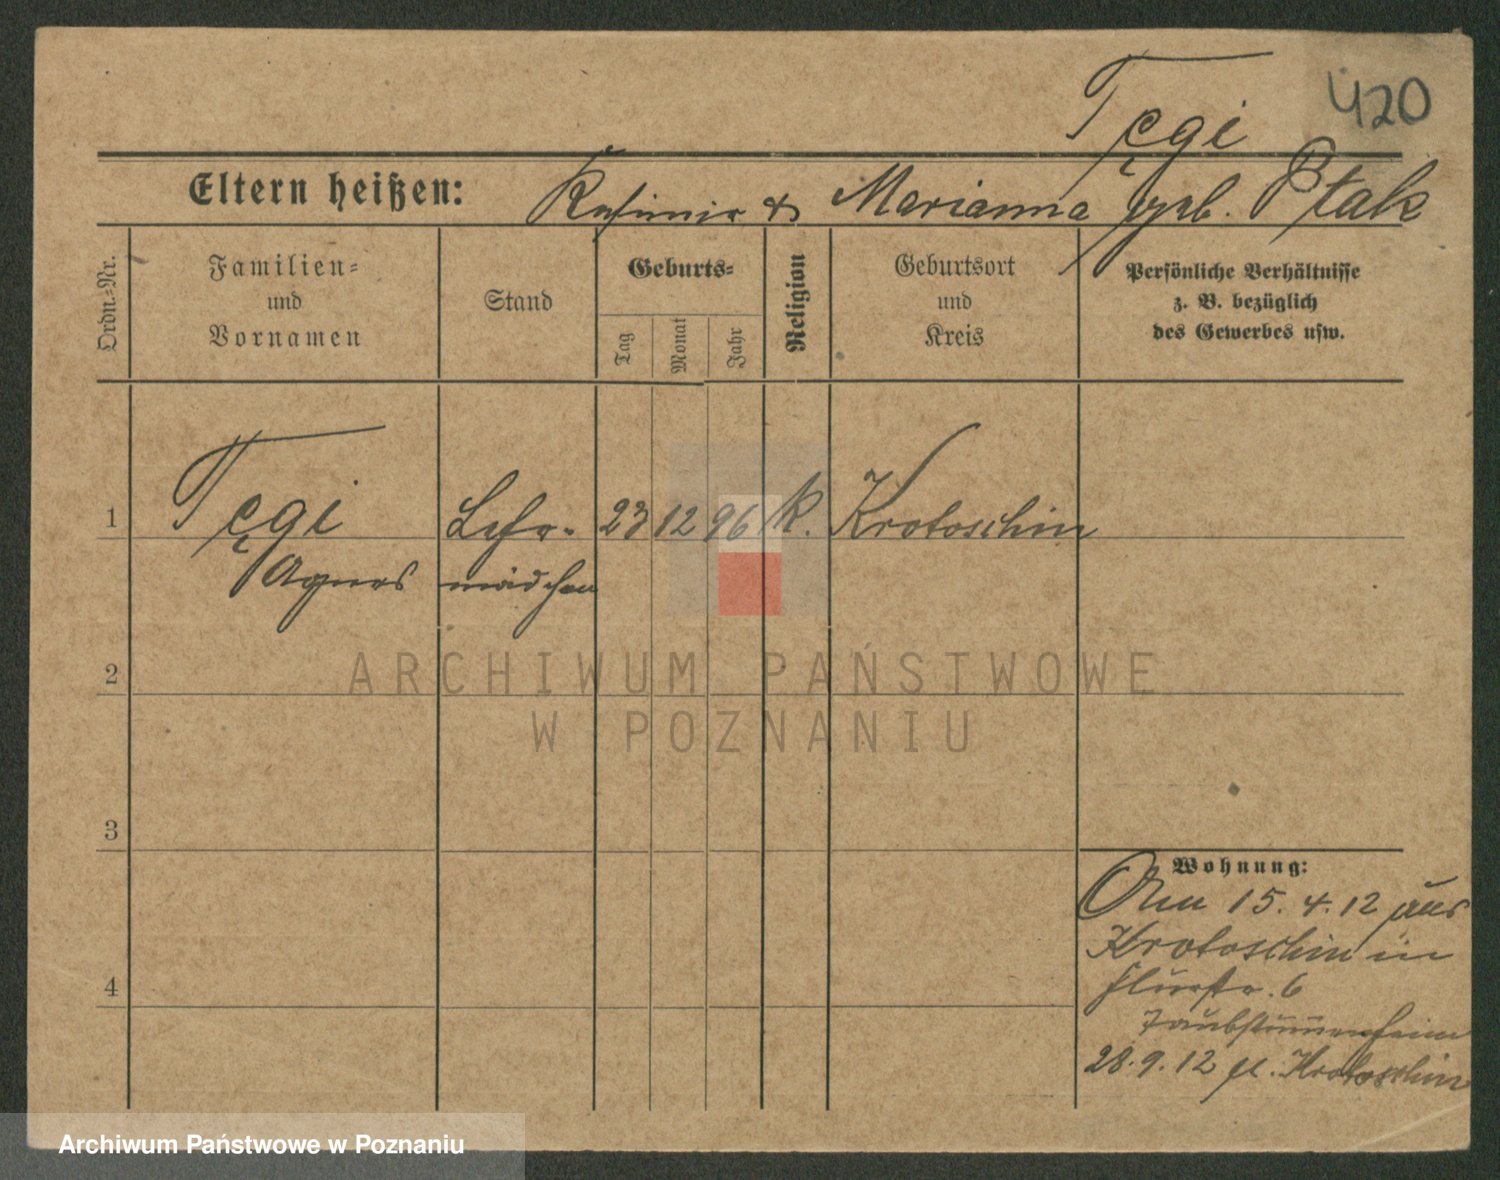 420
Tęgi
Eltern heißen: Kasimir & Marianna geb. Ptak
Ordn.-Nr.
Familien-
und
Vornamen
Stand
Geburts-
Tag
Monat
Jahr
Religion
Geburtsort
und
Kreis
Persönliche Verhältnisse
z. B. bezüglich
des Gewerbes usw.
1 Tęgi Lehr- 23 12 96 k. Krotoschin
Agnes mädchen
2
ARCHIWUM PAŃSTWOWE
W POZNANIU
3
Wohnung:
Am 15. 4. 12 aus
Krotoschin in
Flurstr. 6
4
Taubstummenheim
28. 9. 12 Krotoschin
Archiwum Państwowe w Poznaniu